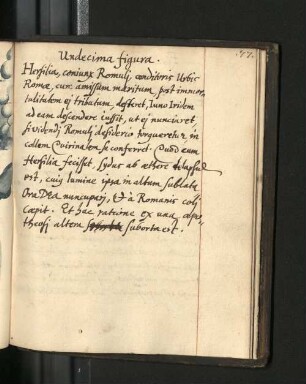 57.
Undecima figura.
Hersilia, coniunx Romuli conditoris Urbis
Romæ, cum amissum maritum, post immor-
talitatem ej tributam, defleret, Juno Iridem
ad eam descendere iussit, ut ej nunciaret,
si videndj Romuli desiderio torqueretur in
collem Quirinalem se conferret. Quod cum
Hersilia fecisset, sydus ab æthere delapsum
est, cuius lumine ipsa in altum sublata
Ora Dea nuncuparj, & à Romanis colj
cœpit. Et hac ratione ex una apo-
theosj altera suborta est.